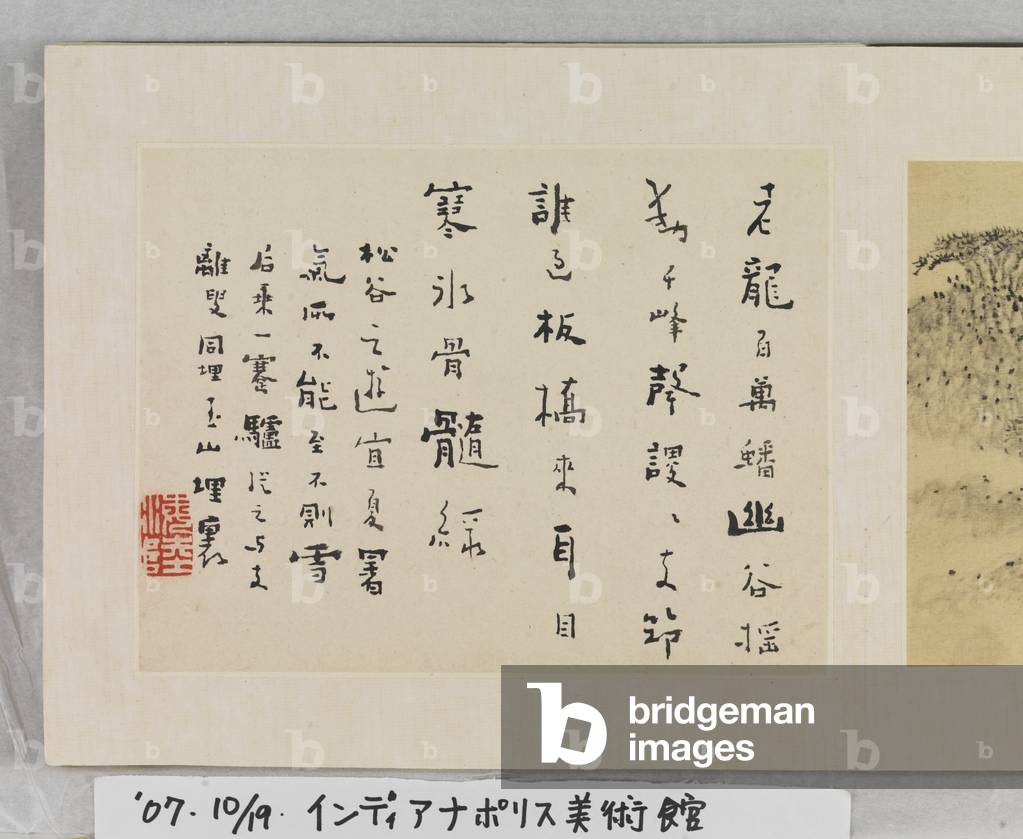 老龍百萬蟠幽谷搖
動千峰聲謖〻支筇
誰過板橋來耳目
寒冰骨髓綠
松谷之遊宜夏署
氣而不能至不則雪
后乘一蹇驢從之与支
離叟同埋玉山埋裏
bridgeman
images
'07.10/19. インディアナポリス美術館